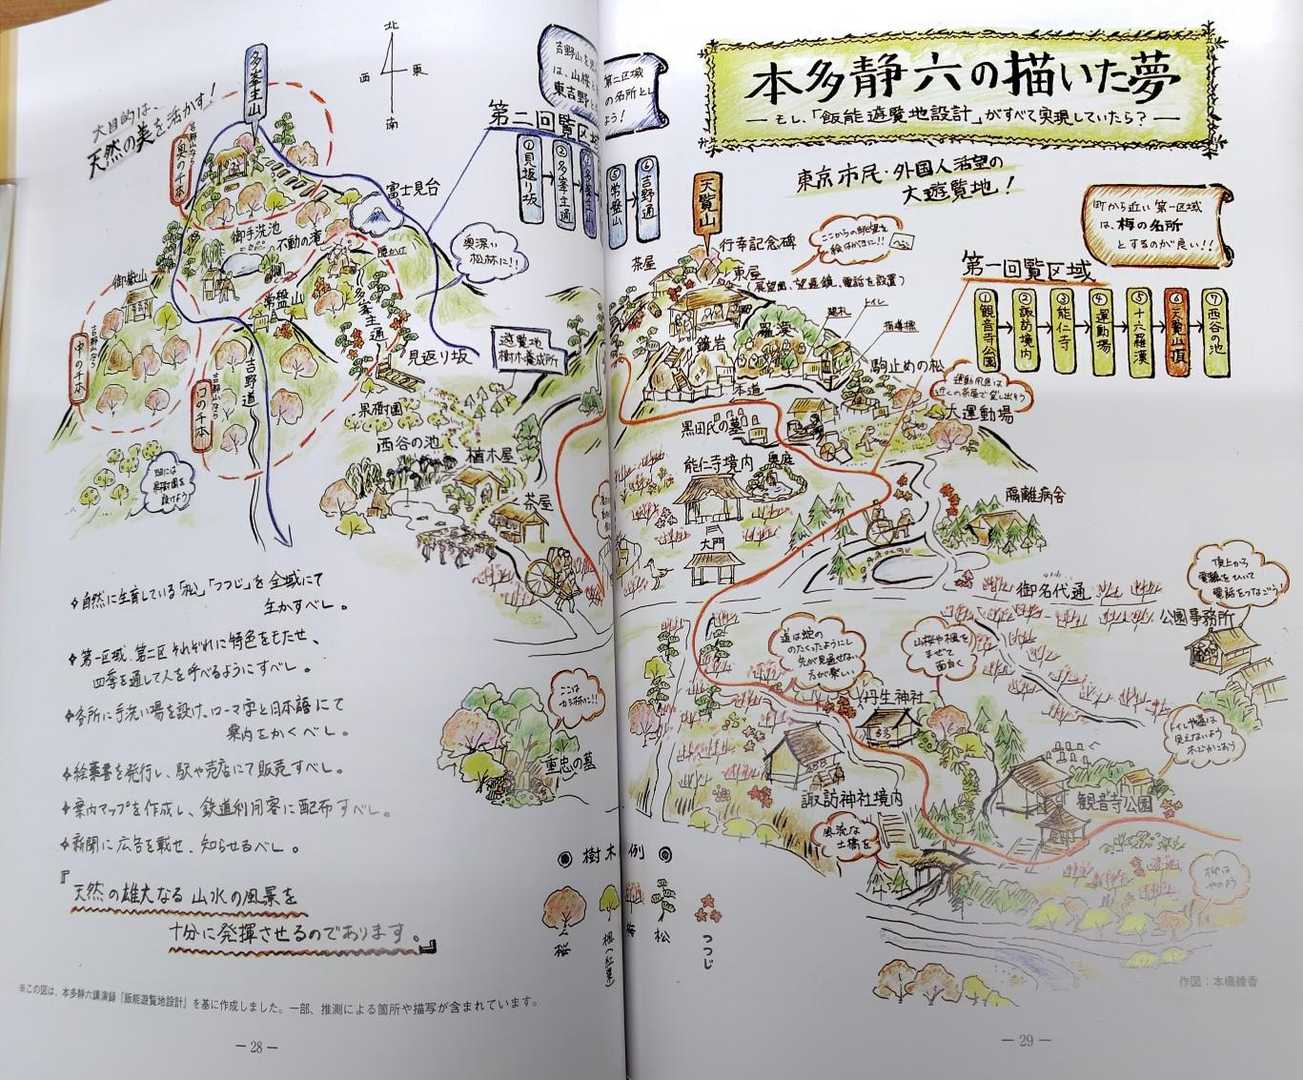 本多静六の描いた夢
― もし、「飯能遊覧地設計」がすべて実現していたら？ ―
東京市民・外国人渇望の
大遊覧地！
町から近い第一区域
は、梅の名所
とするのが良い!!
第一回覧区域
①観音寺公園
②諏訪境内
③能仁寺
④運動場
⑤十六羅漢
⑥天覧山頂
⑦西谷の池
天覧山
行幸記念碑
ここからの眺望を
絵はがきに!!
茶屋
東屋
(展望図、望遠鏡、電話を設置)
トイレ
指導標
羅漢
鏡岩
本道
駒止めの松
大運動場
黒田氏の墓
能仁寺境内
奥庭
大門
隔離病舎
御名代通
頂上から
電線をひいて
電話をつなごう!
公園事務所
道は蛇の
のたくったようにし
先が見通せない
方が楽しい
山桜や楓を
まぜて
面白く
丹生神社
諏訪神社境内
風流な
土橋を
観音寺公園
作図：本橋綾香
― 29 ―
北
西
東
南
大目的は、
天然の美を活かす!
多峯主山
第二回覧区域
①見返り坂
②多峯主通
③多峯主山
⑤常盤山
⑥吉野通
奥の千本
富士見台
奥深い
松林に!!
御手洗池
不動の滝
腰かけ
御嶽山
常盤山
多峯主通
見返り坂
遊覧地
樹木養成所
中の千本
口の千本
吉野道
果樹園
西谷の池
植木屋
茶屋
ここは
重忠の墓
◆自然に生育している「松」「つつじ」を全域にて
生かすべし。
◆第一区域、第二区それぞれに特色をもたせ、
四季を通して人を呼べるようにすべし。
◆各所に手洗い場を設け、ローマ字と日本語にて
案内をかくべし。
◆絵葉書を発行し、駅や売店にて販売すべし。
◆案内マップを作成し、鉄道利用客に配布すべし。
◆新聞に広告を載せ、知らせるべし。
『天然の雄大なる山水の風景を
十分に発揮させるのであります。』
◎樹木 例◎
桜
楓(紅葉)
梅
松
つつじ
※この図は、本多静六講演録「飯能遊覧地設計」を基に作成しました。一部、推測による箇所や描写が含まれています。
― 28 ―